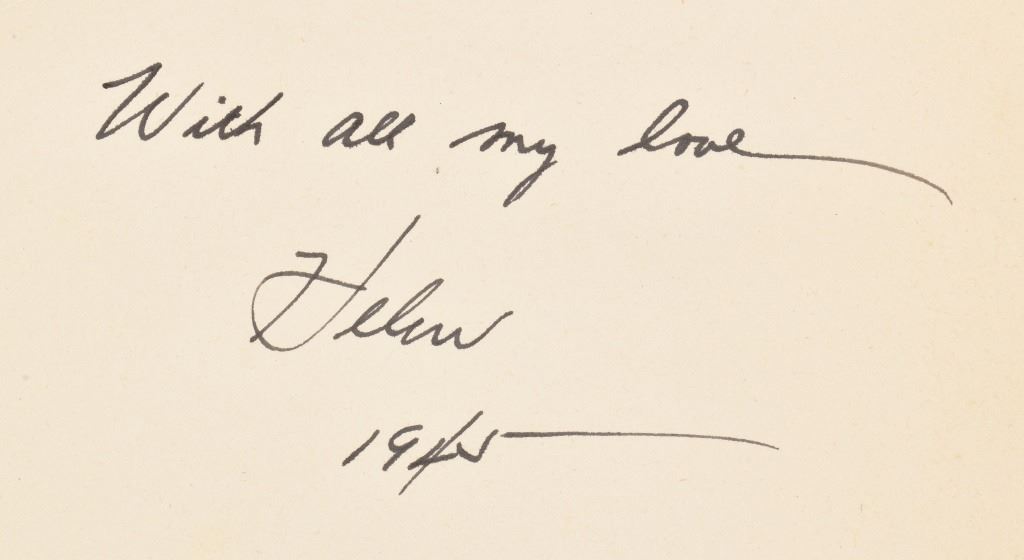 With all my love
Helen
1945